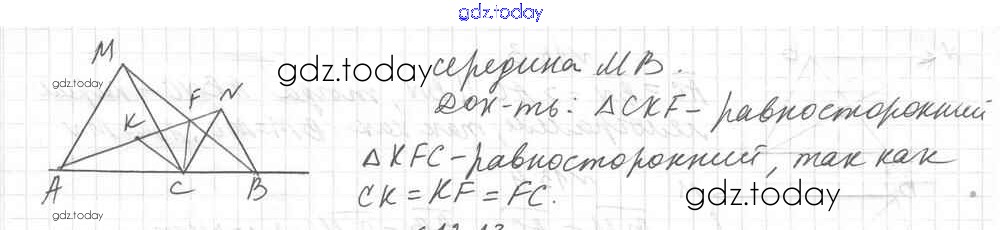 gdz.today
M
gdz.today
gdz.today середина MB.
F N
K
Док-ть: △CKF – равносторонний
△KFC – равносторонний, так как
A C B
CK = KF = FC.
gdz.today
gdz.today